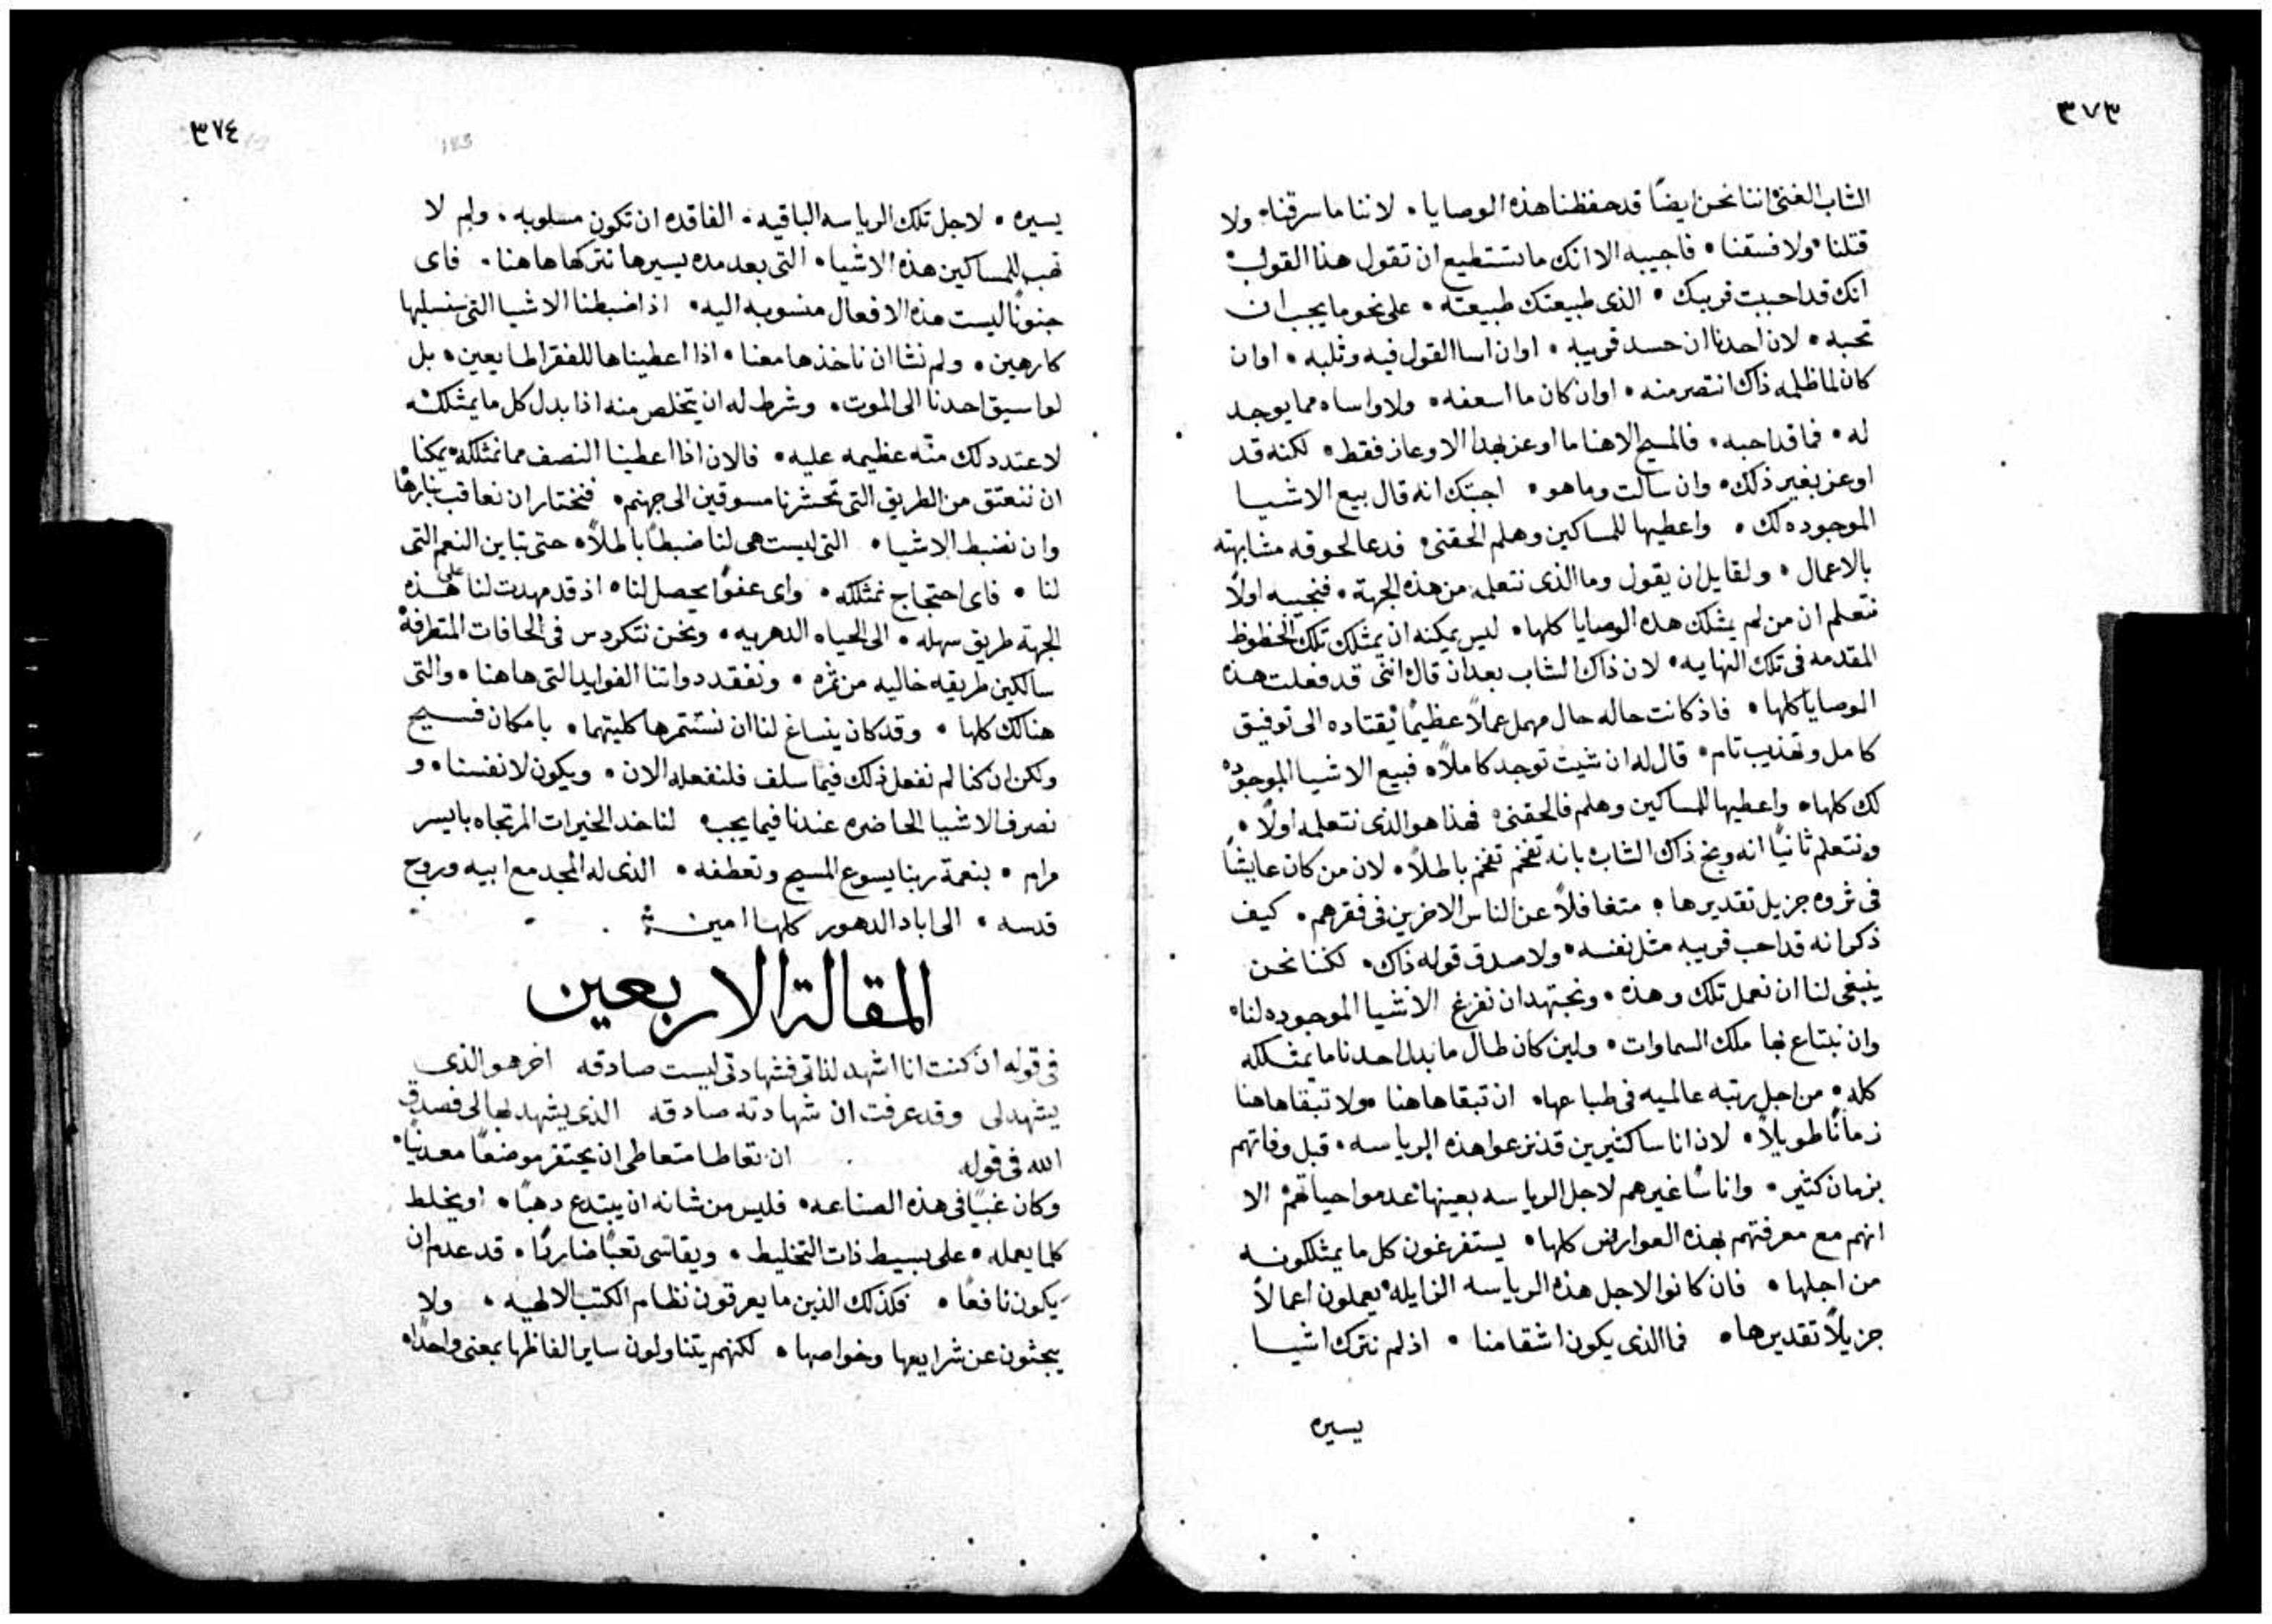 ٣٧٣
الشاب الغني اننا نحن ايضًا قد حفظنا هذه الوصايا • لاننا ما سرقنا • ولا
قتلنا • ولا فسقنا • فاجيبه الا انك ما تستطيع ان تقول هذا القول •
انك قد احببت قريبك • الذى طبيعتك طبيعته • على نحو ما يجب ان
تحبه • لان احدنا ان حسد قريبه • او ان اسا القول فيه وثلبه • او ان
كان لما ظلمه ذاك انتصر منه • او ان كان ما اسعفه • ولا واساه مما يوجد
له • فما قد احبه • فالمسيح الاهنا ما اوعز بهذا الاوعاز فقط • لكنه قد
اوعز بغير ذلك • وان سالت وما هو • اجبتك انه قال بيع الاشيا
الموجوده لك • واعطيها للمساكين وهلم الحقنى • فدعا لحوقه مشابهته
بالاعمال • ولقايل ان يقول وما الذى نتعلمه من هذه الجهة • فنجيبه اولًا
نتعلم ان من لم يمتلك هذه الوصايا كلها • ليس يمكنه ان يمتلك تلك الحظوظ
المقدمه فى تلك النهايه • لان ذاك الشاب بعد ان قال اننى قد فعلت هذه
الوصايا كلها • فاذ كانت حاله حال مهمل عملًا عظيمًا يقتاده الى توفيق
كامل وتهذيب تام • قال له ان شيت توجد كاملًا • فبيع الاشيا الموجوده
لك كلها • واعطيها للمساكين وهلم فالحقنى • فهذا هو الذى نتعلمه اولًا •
ونتعلم ثانيًا انه وبخ ذاك الشاب بانه تفخم تفخم باطلًا • لان من كان عايشًا
فى ثروه جزيل تقديرها • متغافلًا عن الناس الاخرين فى فقرهم • كيف
ذكر انه قد احب قريبه مثل نفسه • ولا صدق قوله ذاك • لكننا نحن
ينبغى لنا ان نعمل تلك وهذه • ونجتهد ان نفرغ الاشيا الموجوده لنا •
وان نبتاع بها ملك السماوات • ولين كان طال ما بدل احدنا ما يمتلكه
كله • من اجل رتبه عالميه فى طباعها • ان تبقا هاهنا • ولا تبقا هاهنا
زمانًا طويلًا • لان اناسا كثيرين قد نزعوا هذه الرياسه • قبل وفاتهم
بزمان كثير • واناسًا غيرهم لاجل الرياسه بعينها عدموا حياتهم • الا
انهم مع معرفتهم بهذه العوارض كلها • يستفرغون كل ما يمتلكونه
من اجلها • فان كانوا لاجل هذه الرياسه الزايله • يعملون اعمالًا
جزيلًا تقديرها • فما الذى يكون اشقا منا • اذ لم نترك اشيا
يسيره
٣٧٤
يسيره • لاجل تلك الرياسه الباقيه • الفاقده ان تكون مسلوبه • ولم لا
نهب للمساكين هذه الاشيا • التى بعد مده يسيره نتركها هاهنا • فاى
جنونًا ليست هذه الافعال منسوبه اليه • اذا ضبطنا الاشيا التى سنسلبها
كارهين • ولم نشا ان ناخذها معنا • اذا اعطيناها للفقرا طايعين • بل
لو اسيق احدنا الى الموت • وشرط له ان يتخلص منه اذا بدل كل ما يمتلكه
لاعتد دلك منّه عظيمه عليه • فالان اذا اعطينا النصف مما نمتلكه • يمكنا
ان ننعتق من الطريق التى تحشرنا مسوقين الى جهنم • فنختار ان نعاقب بنارها
وان نضبط الاشيا • التى ليست هى لنا ضبطًا باطلًا • حتى تباين النعم التى
لنا • فاى احتجاج نمتلكه • واى عفوًا يحصل لنا • اذ قد مهدت لنا على هذه
الجهة طريق سهله • الى الحياه الدهريه • ونحن نتكردس فى الحافات المتطرفة •
سالكين طريقه خاليه من ثمره • ونفقد دواتنا الفوايد التى هاهنا • والتى
هنالك كلها • وقد كان ينساغ لنا ان نستثمرها كليتهما • بامكان فسيح
ولكن ان كنا لم نفعل ذلك فيما سلف فلنفعله الان • ويكون لانفسنا • و
نصرف الاشيا الحاضره عندنا فيما يجب • لناخد الخيرات المرتجاه بايسر
مرام • بنعمة ربنا يسوع المسيح وتعطفه • الذى له المجد مع ابيه وروح
قدسه • الى اباد الدهور كلها امين
المقالة الاربعين
فى قوله ان كنت انا اشهد لذاتى فشهادتى ليست صادقه اخر هو الذى
يشهد لى وقد عرفت ان شهادته صادقه الذى يشهد بها لى فصدق
الله فى قوله ان تعاطا متعاطى ان يحتفر موضعًا معدنيًا •
وكان غبيًا فى هذه الصناعه • فليس من شانه ان يبتدع دهبًا • او يخلط
كلما يعمله • على بسيط ذات التخليط • ويقاسى تعبًا ضاربًا • قد عدم ان
يكون نافعًا • فكذلك الذين ما يعرفون نظام الكتب الالهيه • ولا
يبحثون عن شرايعها وخواصها • لكنهم يتناولون ساير الفاظها بمعنى واحدًا •